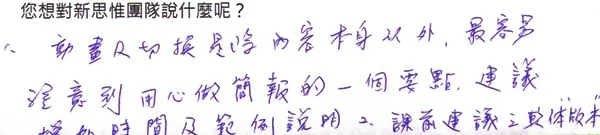 您想對新思惟團隊說什麼呢？
1、動畫及切換是除內容本身以外，最容易
注意到用心做簡報的一個要點，建議
增加時間及範例說明 2、課前建議之軟体"版本